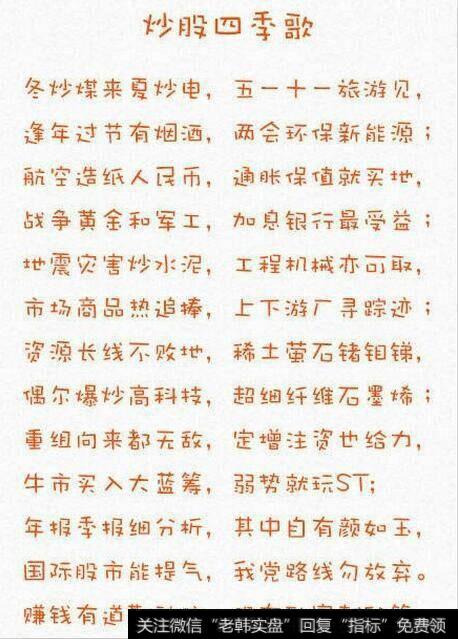 炒股四季歌
冬炒煤来夏炒电，五一十一旅游见，
逢年过节有烟酒，两会环保新能源；
航空造纸人民币，通胀保值就买地，
战争黄金和军工，加息银行最受益；
地震灾害炒水泥，工程机械亦可取，
市场商品热追捧，上下游厂寻踪迹；
资源长线不败地，稀土萤石锗钼锑，
偶尔爆炒高科技，超细纤维石墨烯；
重组向来都无敌，定增注资也给力，
牛市买入大蓝筹，弱势就玩ST；
年报季报细分析，其中自有颜如玉，
国际股市能提气，我党路线勿放弃。
赚钱有道
关注微信“老韩实盘”回复“指标”免费领